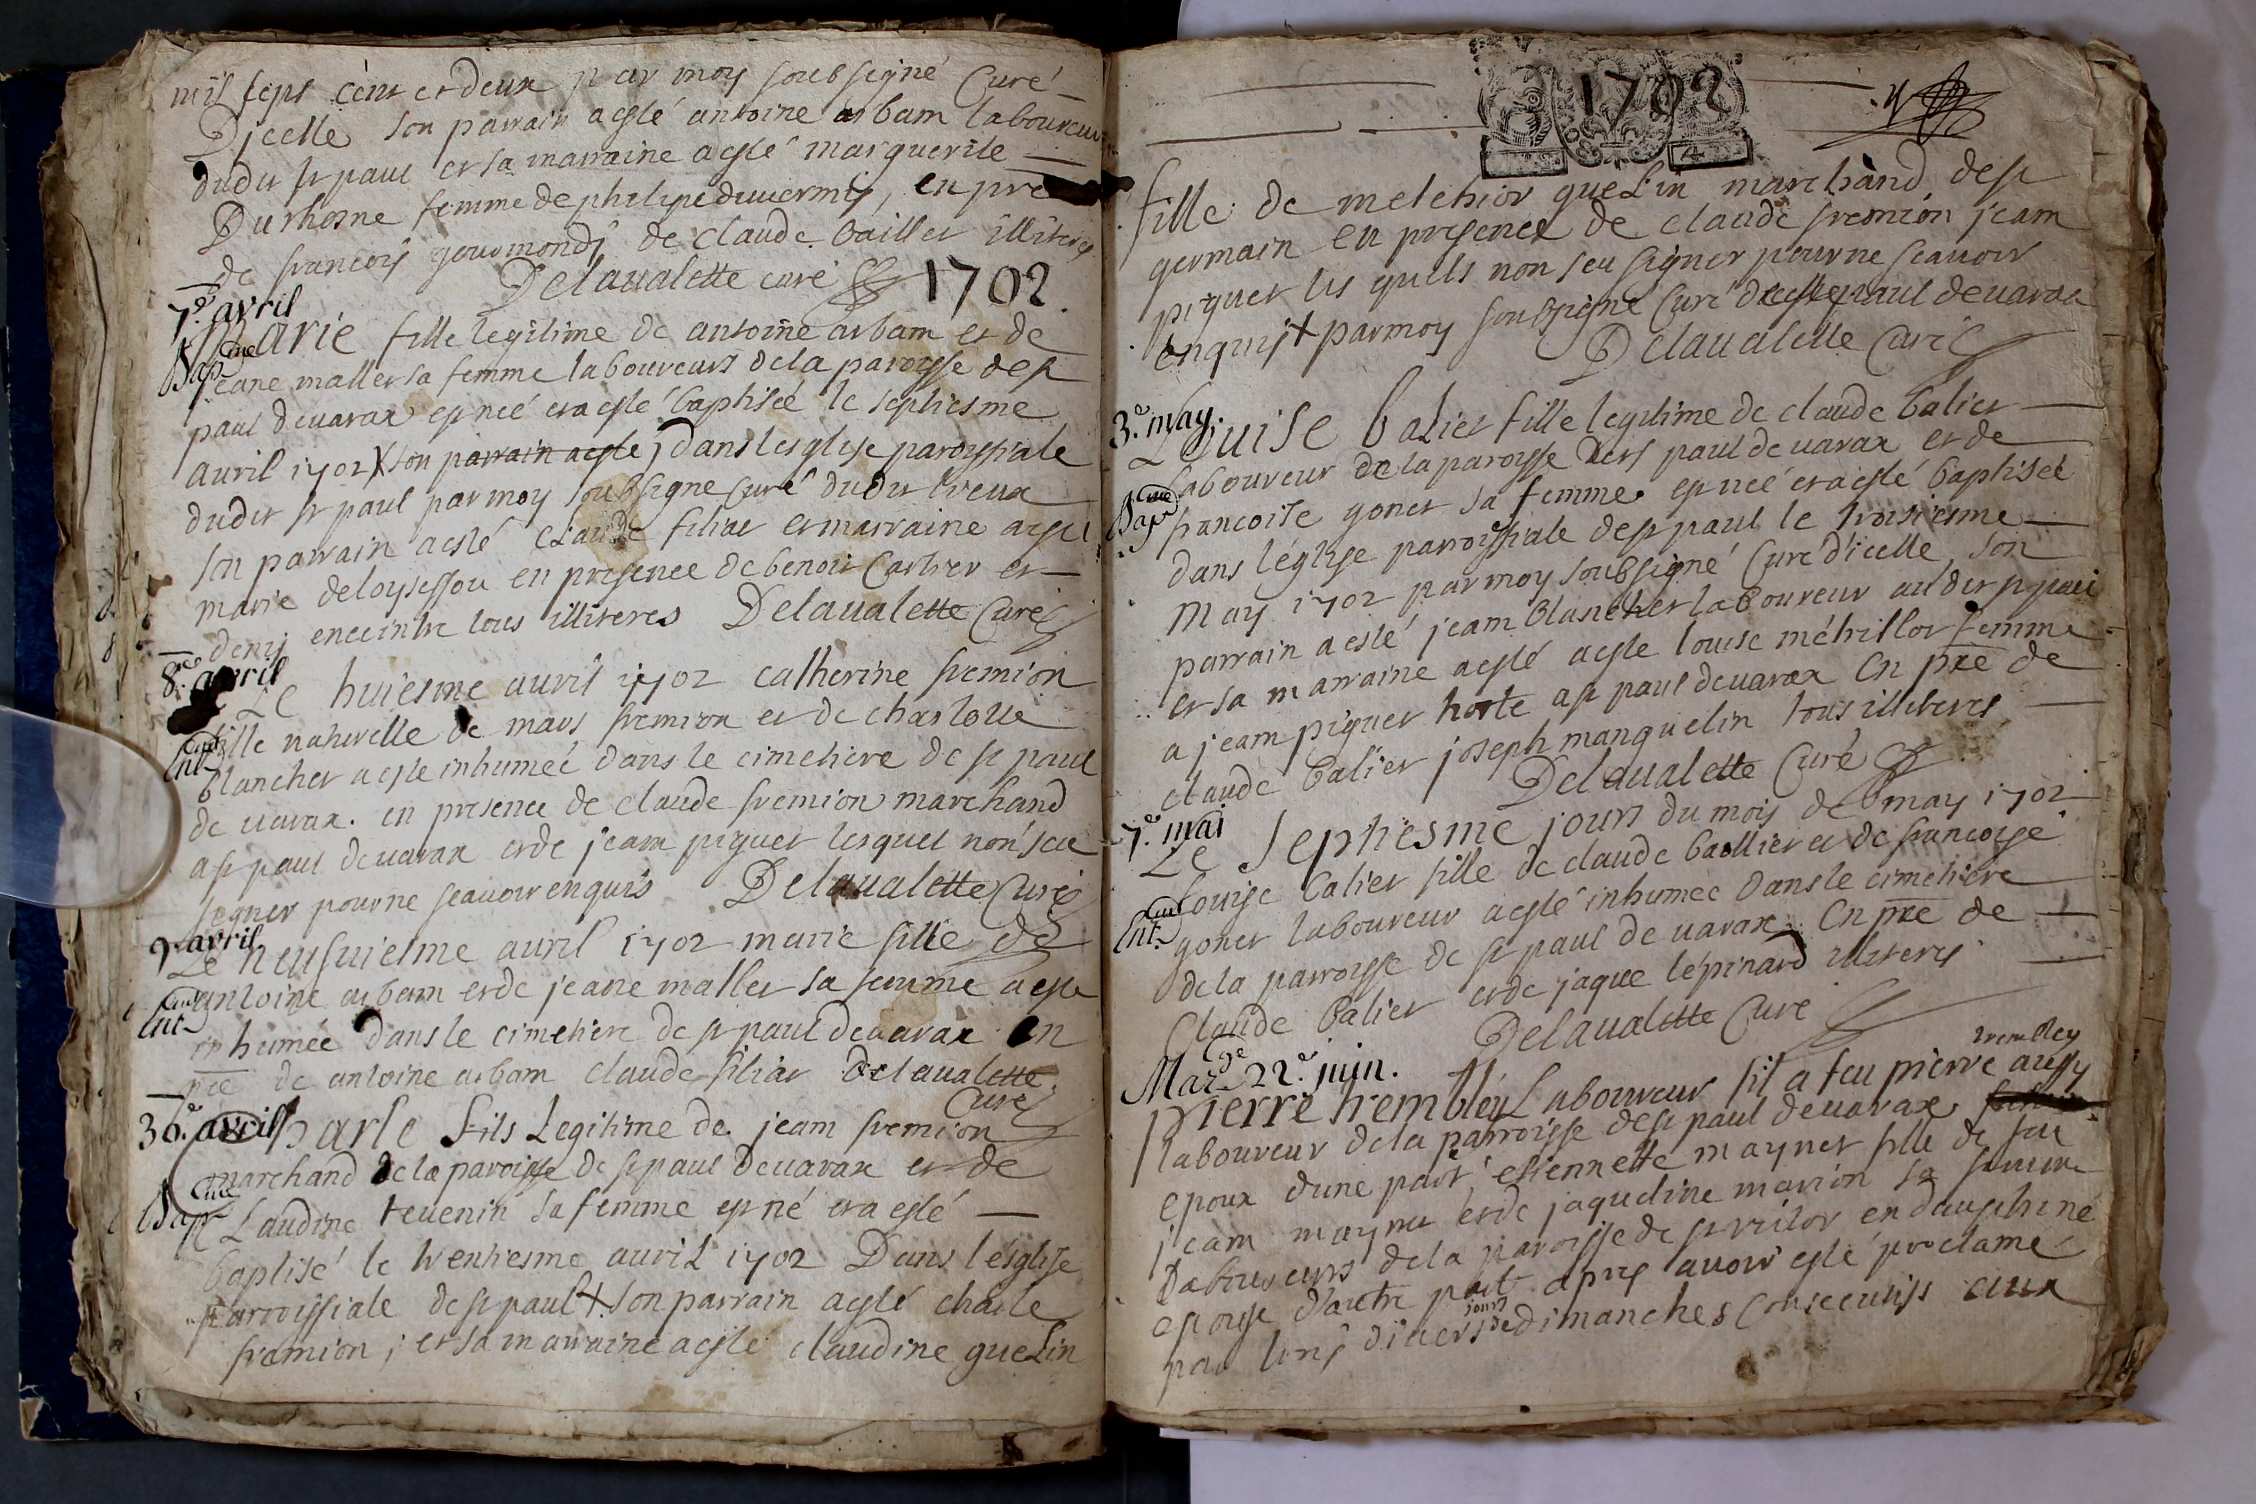 mil sept cent et deux par moy soubsigné Curé
Dicelle son parrain a esté antoine arbam laboureur
dudit st paul et sa marraine a esté marguerite
Durhosne femme de philipe duvernis, en pre
de francois gourmond, de claude bailler illiteres
Delaualette curé 1702
7.e avril
Marie fille legitime de antoine arbam et de
Bap.
jeane maller sa femme laboureurs de la paroisse de st
paul de uarax est neé et a esté baptiseé le septiesme
auril 1702 X son parrain a esté) dans lesglise paroissiale
dudit st paul par moy soubsigné Curé dudit lieux
son parrain a esté Claude filiar et marraine a esté
marie deloysessou en presence de benoit Carlier et
denis enceintre tous illiteres Delaualette Curé
8.e avril
Le huiesme auril 1702 catherine fremion
fille naturelle de mars fremion et de charlotte
Ent.
blancher a esté inhumeé dans le cimetiere de st paul
de uarax. en presence de claude fremion marchand
a st paul de uarax et de jeam piguet lesquel non sceu
segner pour ne scauoir enquis Delaualette Curé
9.e avril
Le neufuiesme auril 1702 marie fille de
antoine arbam et de jeane maller sa femme a este
Ent.
inhumée dans le cimetiere de st paul de uarax en
pre de antoine arbam claude filiar Delaualette
Curé
30.e avril
Charle fils Legitime de jeam fremion
marchand de la paroisse de st paul de uarax et de
Bap.
Claudine teuenin sa femme est né et a esté
baptisé le trentiesme auril 1702 Dans lésglise
parroissiale de st paul X son parrain a esté charle
fremion; et sa marraine a esté claudine guelin
1702
fille de melchior guelin marchand de st
germain en presence de claude fremion jeam
piguet les quels non seu signer pour ne scauoir
enquis X par moy soubsigné Curé de st paul de uarax
Delaualette Curé
3.e may.
Louise balier fille legitime de claude balier
laboureur de la paroysse de st paul de uarax et de
Bap.
francoise goner sa femme est neé et a esté baptiseé
dans léglise parroissiale de st paul le troisiesme
May 1702 par moy soubsigné Curé d'icelle son
parrain a esté jeam blancher laboureur audit st paul
et sa marraine a esté a este louise métrillor femme
a jeam piguet hoste a st paul de uarax en pre de
claude balier joseph manguelin tous illiteres
Delaualette Curé
7.e mai
Le septiesme jours du mois de may 1702
louise balier fille de claude ballier et de francoise
Ent.
goner laboureur a esté inhumée dans le cimetiere
de la parroysse de st paul de uarax en pre de
Claude balier et de jaque lépinard illiteres
Delaualette Curé
Mar.ge 22.e juin.
trembley
pierre trembley Laboureur fil a feu pierre aussy
laboureur de la parroisse de st paul de uarax
epoux dune part, estiennette maynet fille de feu
jeam maynet et de jaqueline marion sa femme
Laboureurs de la paroisse de st victor en dauphiné
epouse d'autre part apres auoir esté proclamé
jours
par trois diuers de dimanches consecutifs aux